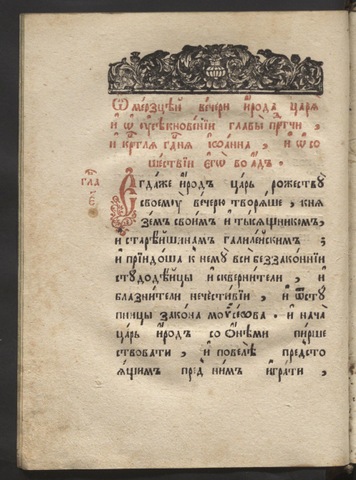 Ѡ мерзцѣй вечери и҆рода царя
и҆ ѡ ᲂу҆сѣкновенїи главы прⷣтчи,
и҆ крⷭ҇тлѧ гдⷭ҇нѧ їѡанна, и҆ ѡ во
шествїи є҆гѡ во а҆дъ.
гла
Є҆гдаже и҆родъ царь рожествꙋ̀
своемꙋ̀ вечерю творѧше, кнѧ
земъ своимъ и҆ тысѧщникомъ,
и҆ старѣйшинамъ галилейскимъ;
и҆ прїидоша к немꙋ̀ вси беззаконнїи
стꙋдодѣйцы и҆ сквернители, и҆
блазнители нечестивїи, и҆ ѿстꙋ
пницы закона моѵсеѡва. и҆ нача
царь и҆родъ со ѻ҆нѣми пирше
ствовати, и҆ повелѣ предсто
ѧщимъ пред нимъ и҆грати,